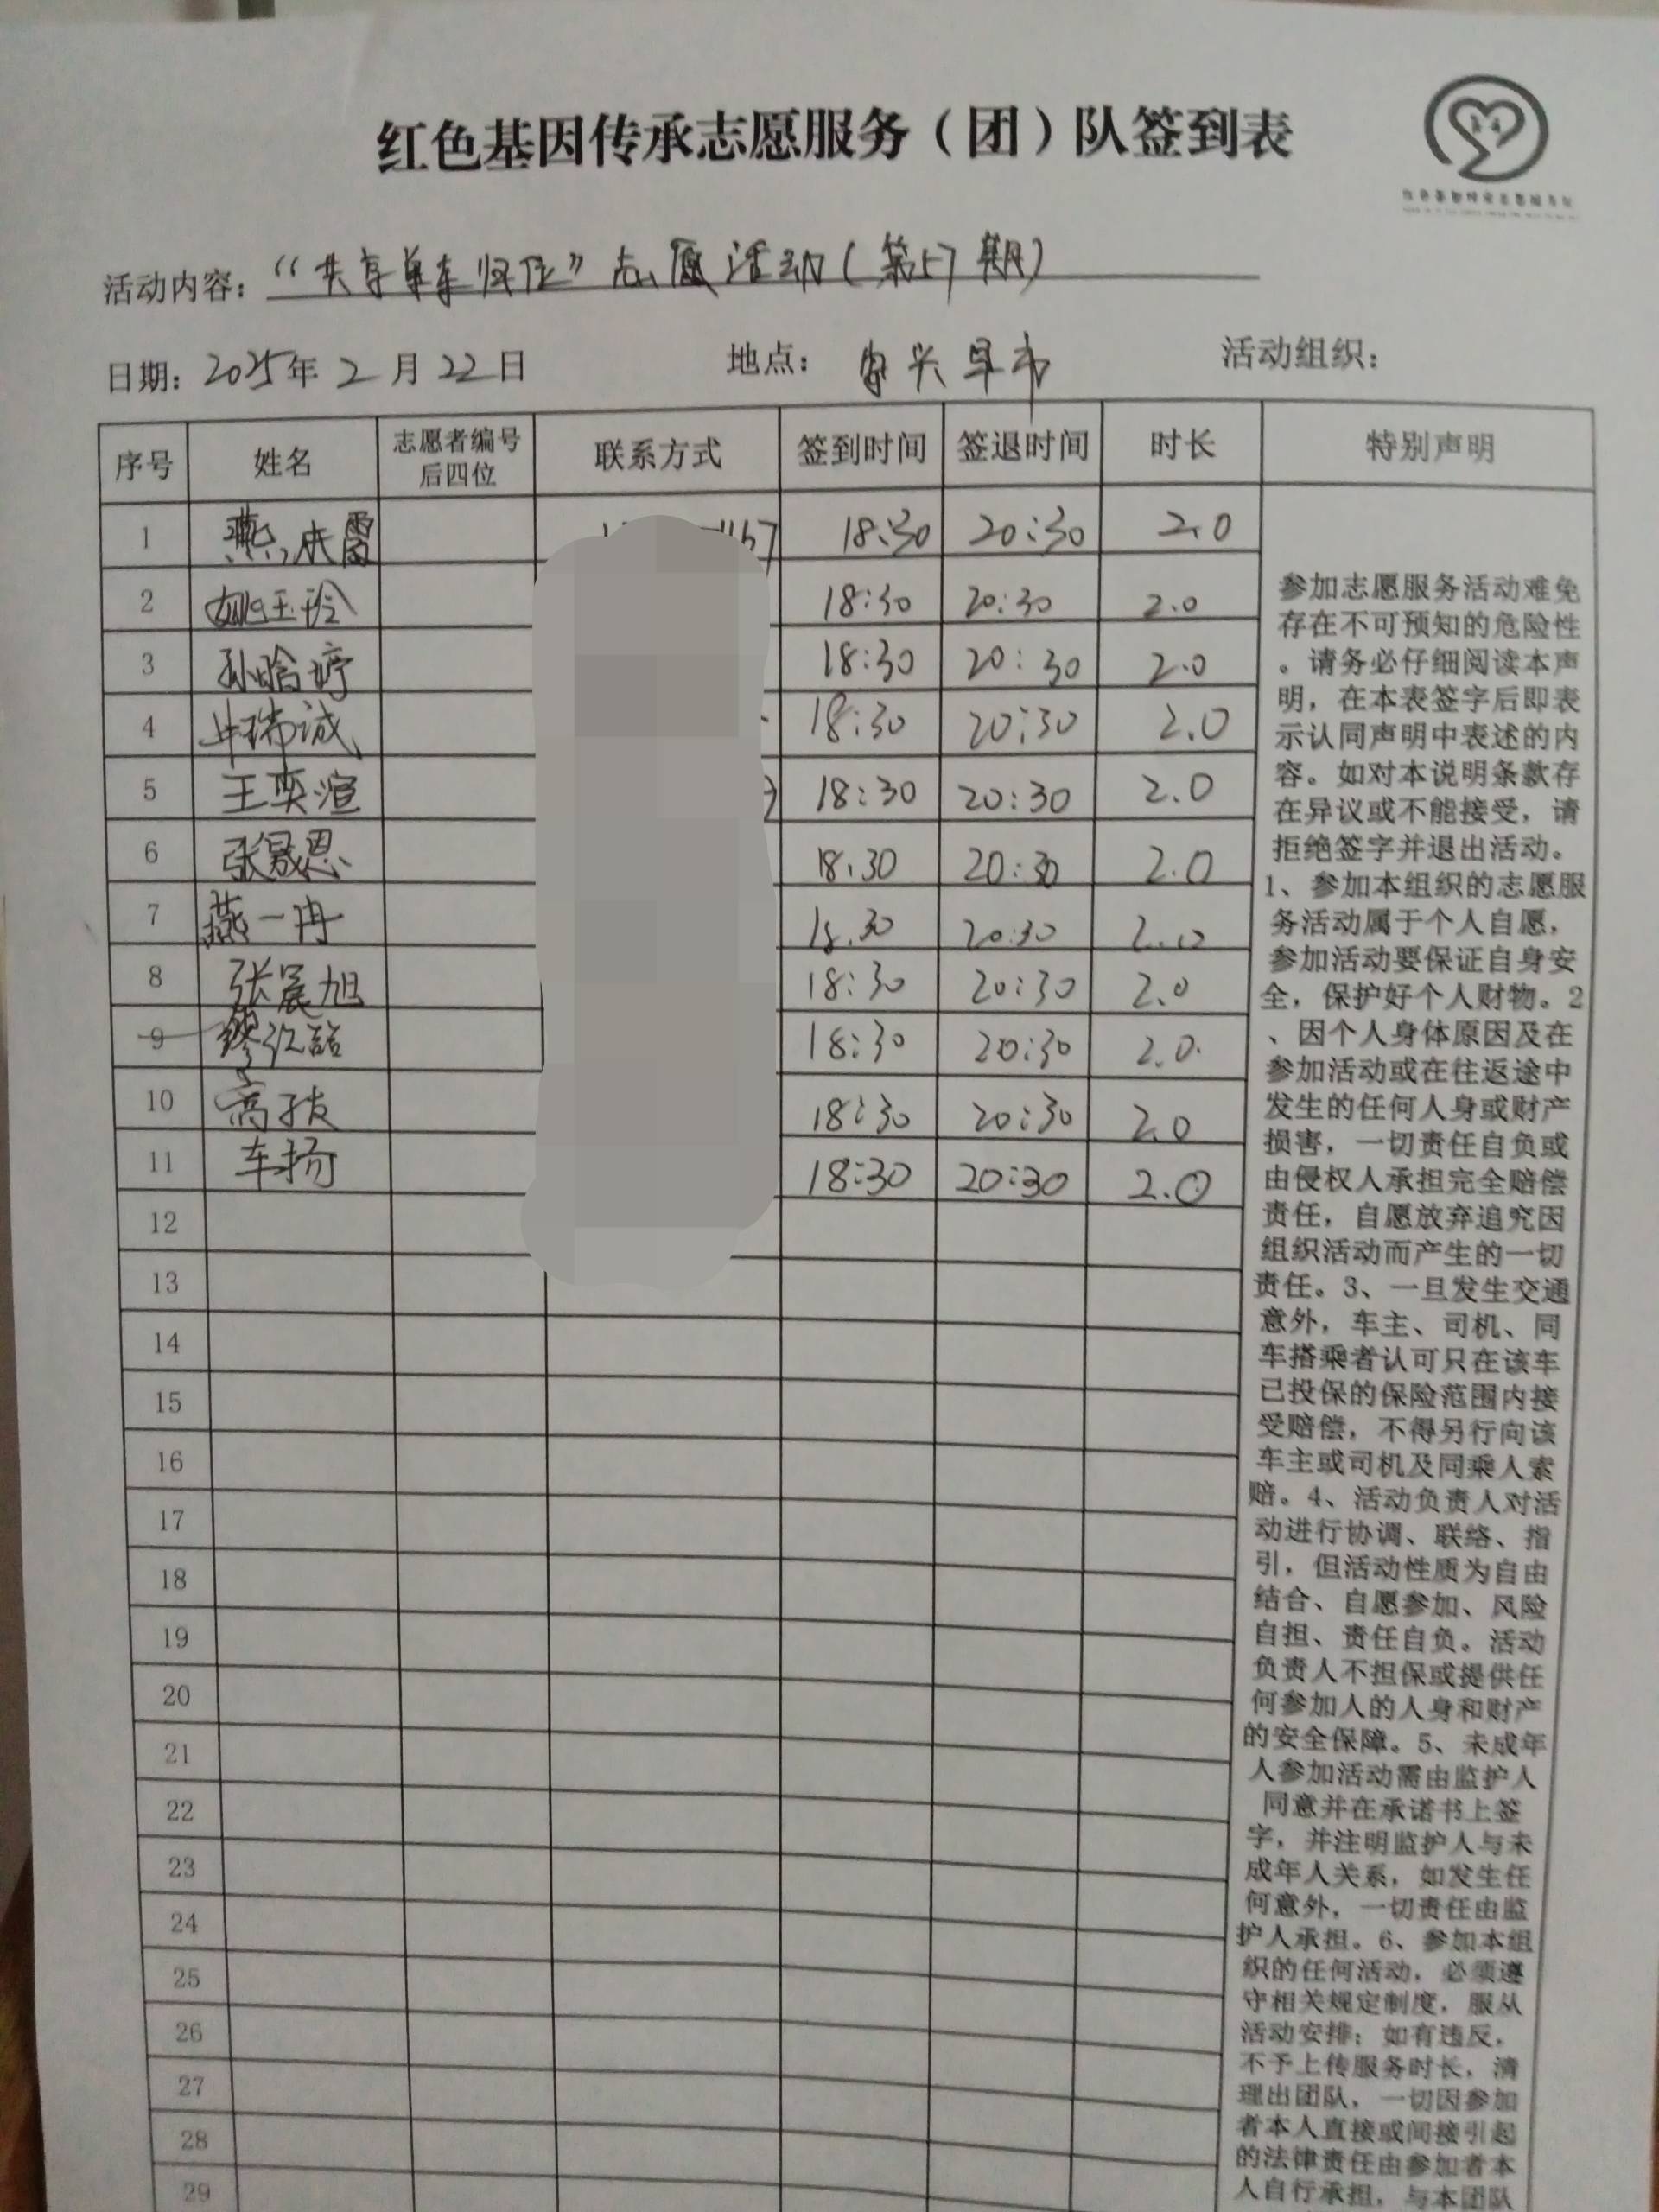 红色基因传承志愿服务（团）队签到表
活动内容：“共享单车归位”志愿活动（第57期）
日期：2025年2月22日 地点：早市 活动组织：
序号 姓名 志愿者编号后四位 联系方式 签到时间 签退时间 时长 特别声明
1 燕 18:30 20:30 2.0
2 姚玉玲 18:30 20:30 2.0
3 孙晗婷 18:30 20:30 2.0
4 牛瑞诚 18:30 20:30 2.0
5 王奕渲 18:30 20:30 2.0
6 张晟恩 18.30 20:30 2.0
7 燕一冉 18.30 20:30 2.0
8 张宸旭 18:30 20:30 2.0
9 缪 18:30 20:30 2.0
10 高 18:30 20:30 2.0
11 车扬 18:30 20:30 2.0
12
13
14
15
16
17
18
19
20
21
22
23
24
25
26
27
28
29
参加志愿服务活动难免
存在不可预知的危险性
。请务必仔细阅读本声
明，在本表签字后即表
示认同声明中表述的内
容。如对本说明条款存
在异议或不能接受，请
拒绝签字并退出活动。
1、参加本组织的志愿服
务活动属于个人自愿，
参加活动要保证自身安
全，保护好个人财物。2
、因个人身体原因及在
参加活动或在往返途中
发生的任何人身或财产
损害，一切责任自负或
由侵权人承担完全赔偿
责任，自愿放弃追究因
组织活动而产生的一切
责任。3、一旦发生交通
意外，车主、司机、同
车搭乘者认可只在该车
已投保的保险范围内接
受赔偿，不得另行向该
车主或司机及同乘人索
赔。4、活动负责人对活
动进行协调、联络、指
引，但活动性质为自由
结合、自愿参加、风险
自担、责任自负。活动
负责人不担保或提供任
何参加人的人身和财产
的安全保障。5、未成年
人参加活动需由监护人
同意并在承诺书上签
字，并注明监护人与未
成年人关系，如发生任
何意外，一切责任由监
护人承担。6、参加本组
织的任何活动，必须遵
守相关规定制度，服从
活动安排；如有违反，
不予上传服务时长，清
理出团队，一切因参加
者本人直接或间接引起
的法律责任由参加者本
人自行承担，与本团队